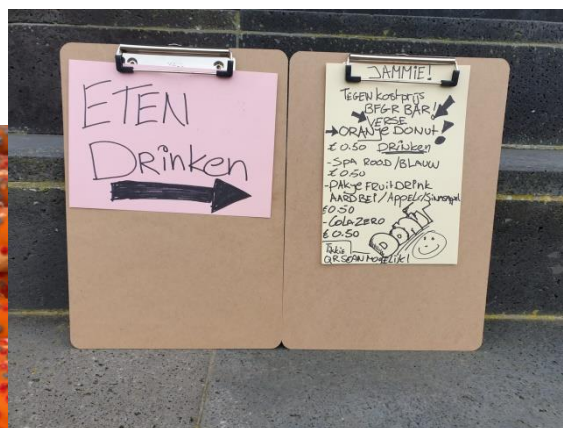 ETEN
Drinken
JAMMIE!
TEGEN kostprijs
BFGR BAR!
VERSE
ORANJE DONUT!
€0.50 DRINKEN
-SPA ROOD/BLAUW
€0.50
-PAKJE FRUITDRINK
AARDBEI/APPEL/Sinaasappel
€0.50
-COLA ZERO
€0.50
QR SCAN MOGELIJK!